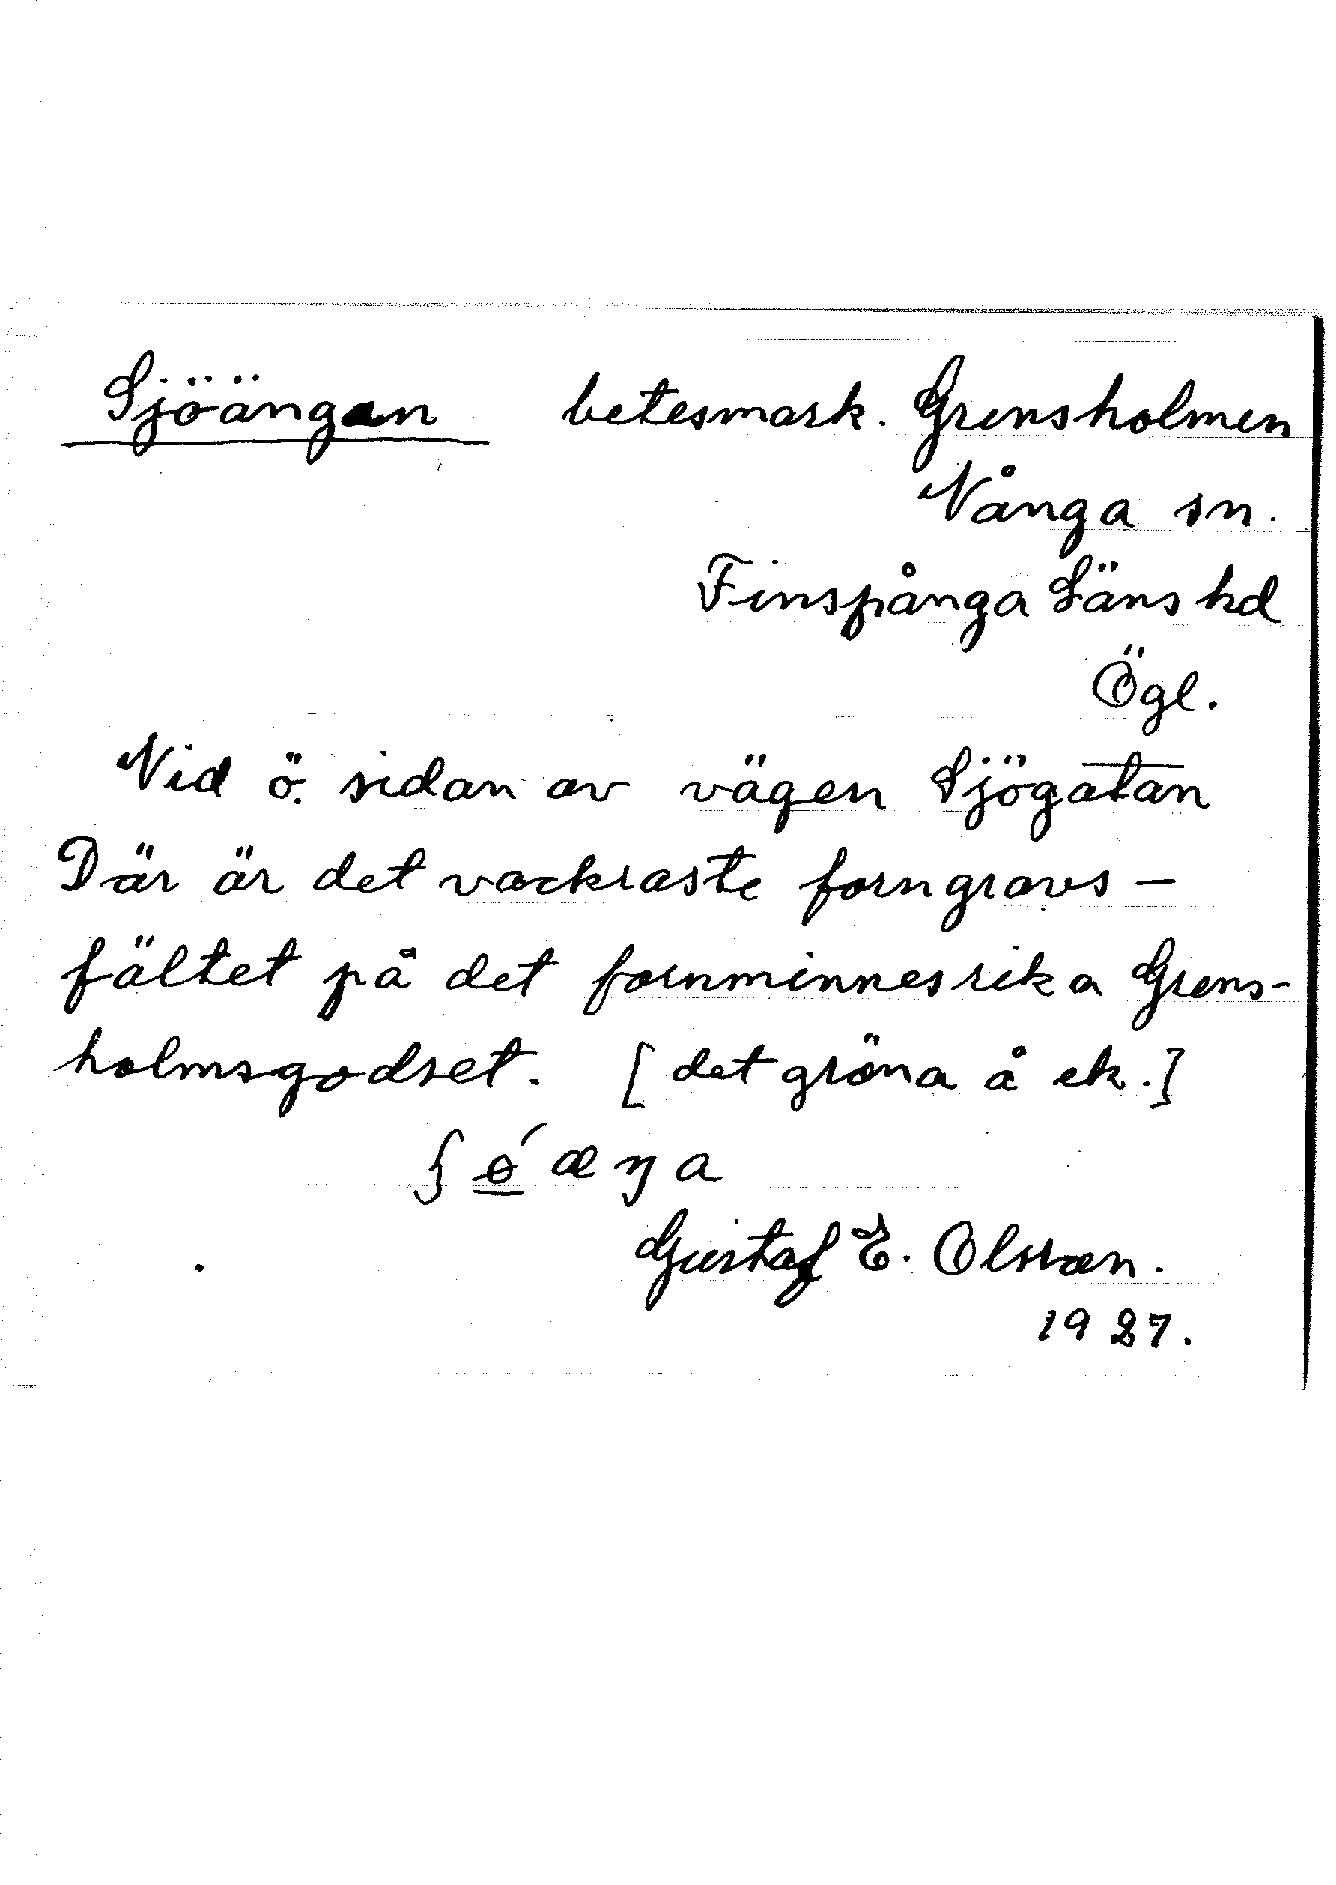 Sjöängen betesmark. Grensholmen
Vånga sn.
Finspånga Läns hd
Ögl.
Vid ö. sidan av vägen Sjögatan
Där är det vackraste forngravs-
fältet på det fornminnesrika Grens-
holmsgodset. [det gröna å ek.]
Gustaf E. Olsson.
1927.